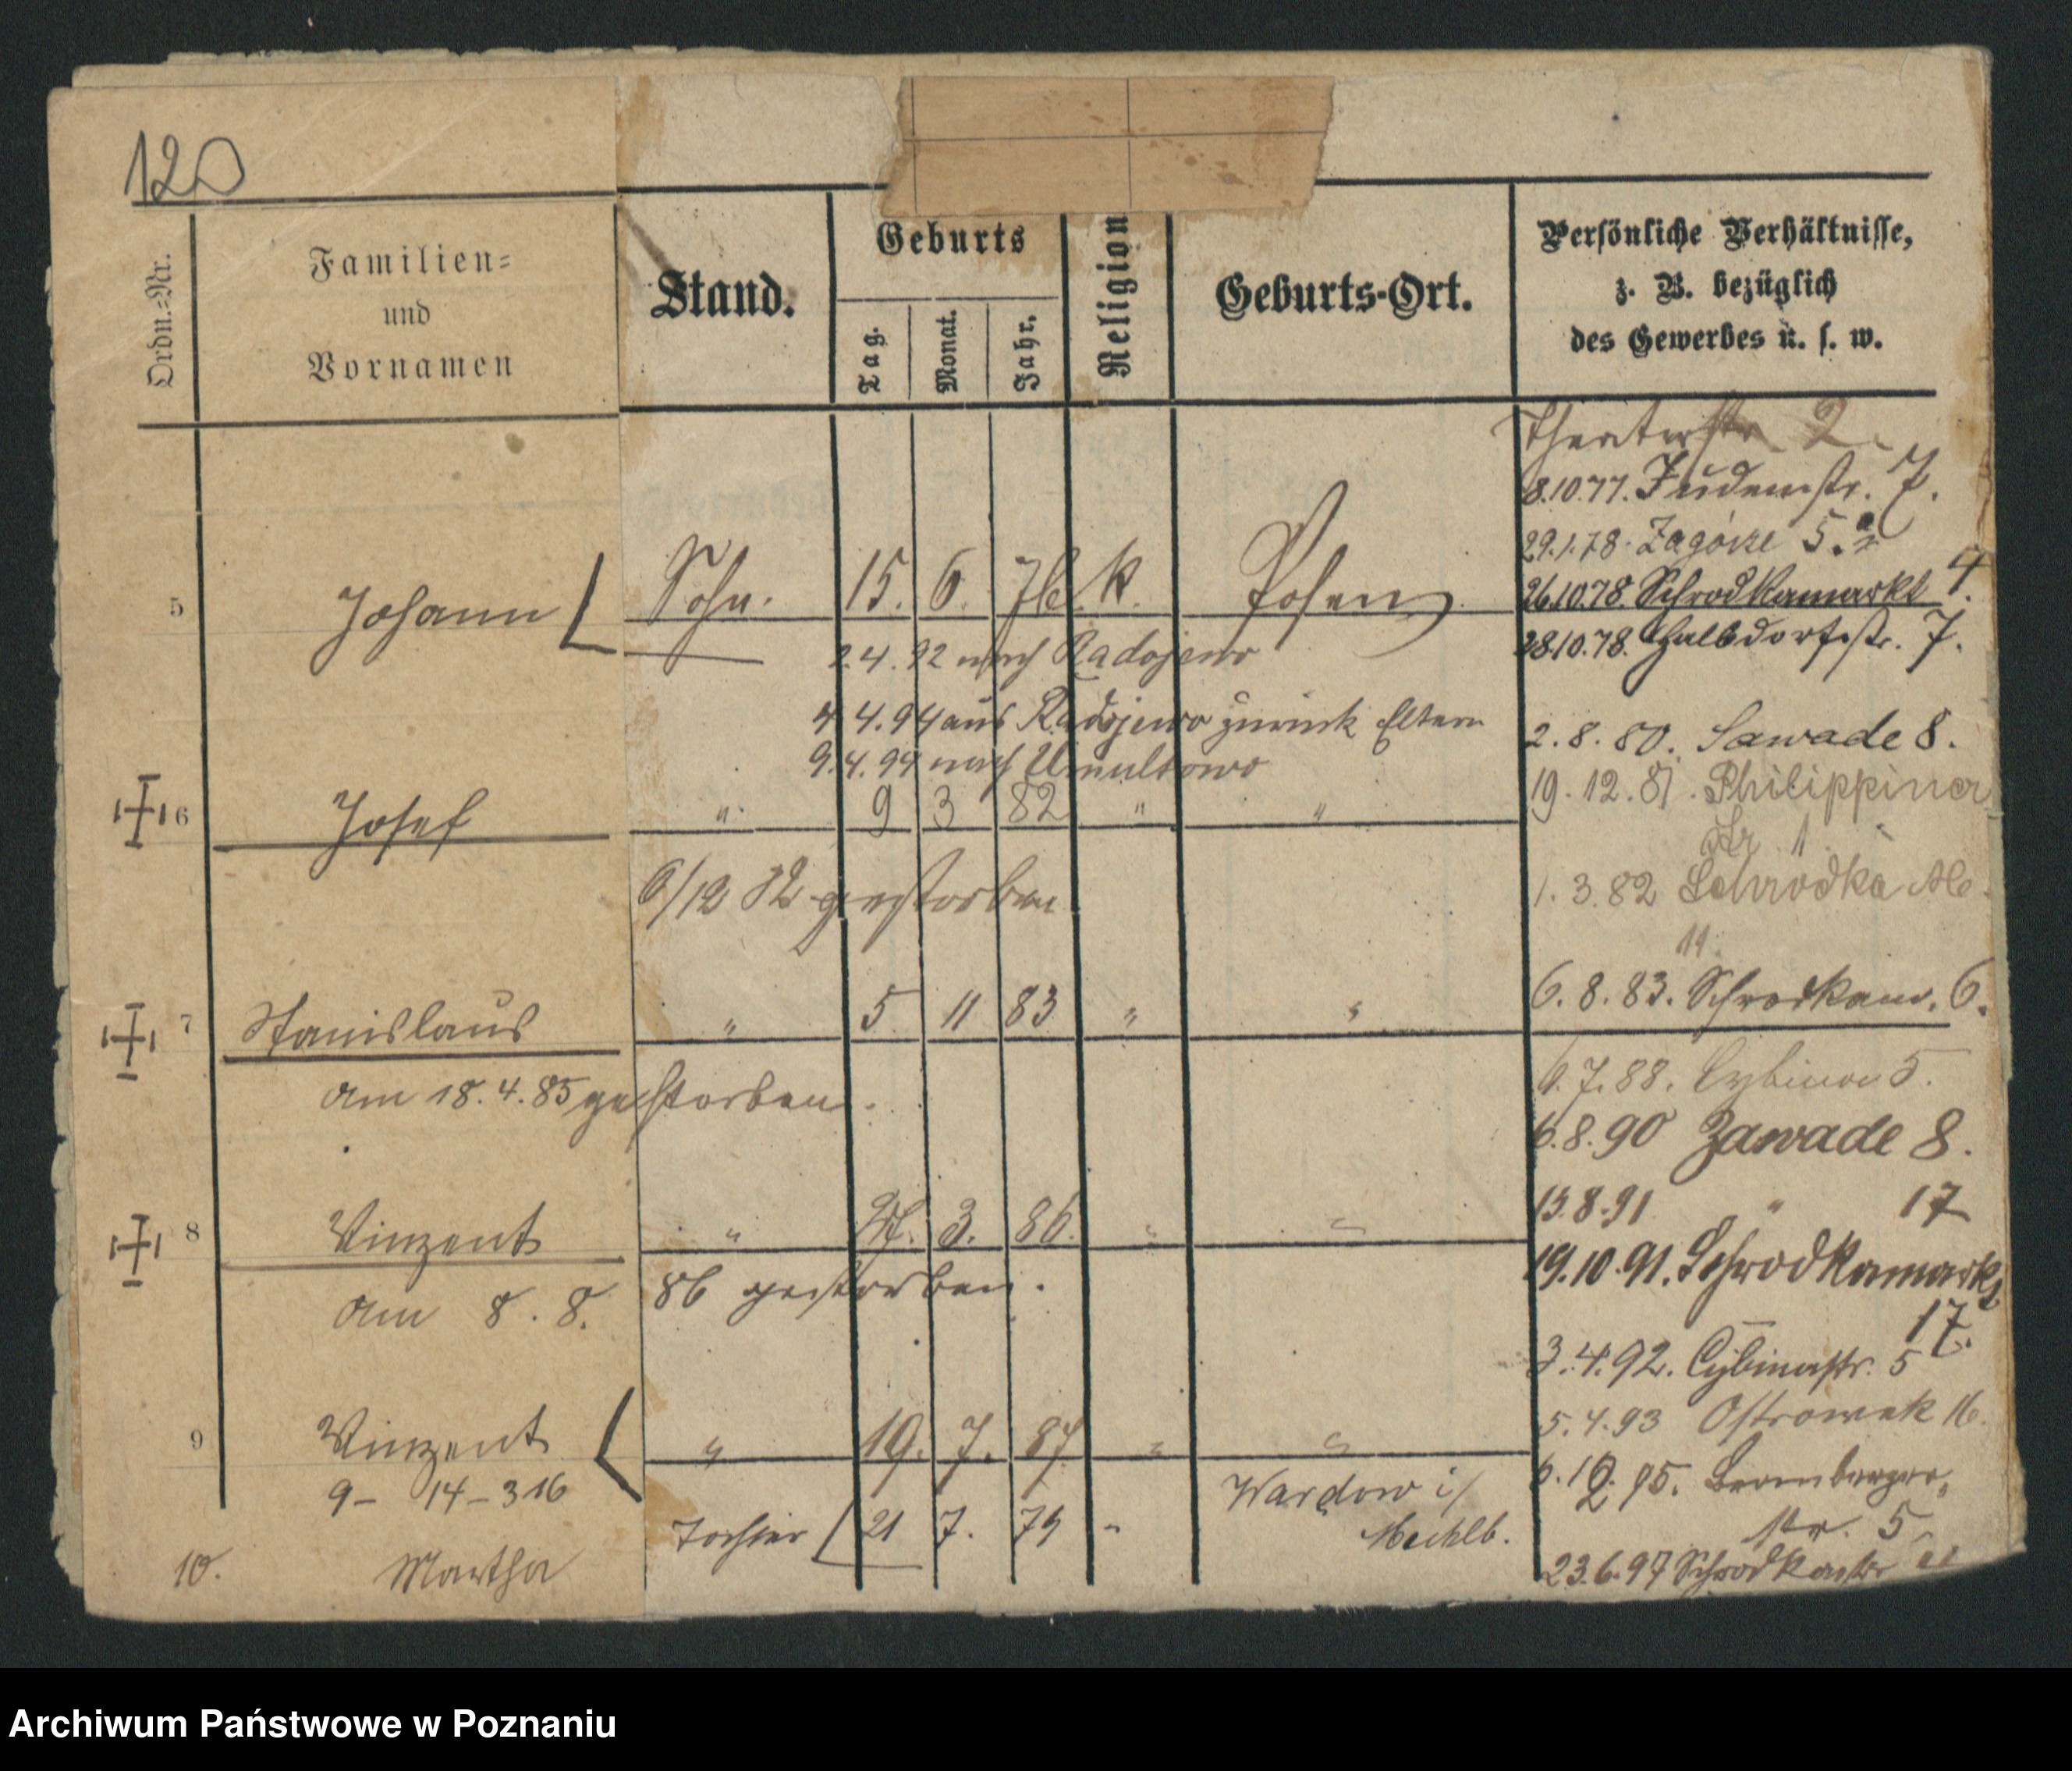 120
Ordn.-Nr.
Familien-
und
Vornamen
Stand.
Geburts
Tag.
Monat.
Jahr.
Religion
Geburts-Ort.
Persönliche Verhältnisse,
z. B. bezüglich
des Gewerbes u. s. w.
Theaterstr 2.
8.10.77. Judenstr. 7.
29.1.78. Zagórze 5.
26.10.78. Schrodkamarkt 4.
28.10.78. Halbdorfstr. 7.
5 Johann Sohn. 15. 6. 76. k. Posen
2.4.92 nach Radojewo
4.4.94 aus Radojewo zurück Eltern
9.4.94 nach Umultowo
2.8.80. Sawade 8.
19.12.81. Philippiner
Str. 11.
6 Josef " 9 3 82 " "
6/12 82 gestorben
1.3.82 Schrodka
11.
6.8.83. Schrodkam. 6.
7 Stanislaus " 5 11 83 " "
am 18.4.85 gestorben.
6.7.88. Cybina 5.
6.8.90 Zawade 8.
13.8.91 " 17
8 Vinzent " 3. 86. " "
am 8.8. 86 gestorben.
19.10.91. Schrodkamarkt
17.
3.4.92. Cybinastr. 5
5.4.93 Ostrowek 16.
9 Vinzent " 19. 7. 87 " "
9- 14-316
95. Bromberger-
str. 5
10. Martha Tochter 21 7. 79 " Wardow i/
Mecklb.
23.6.97 Schrodkastr
Archiwum Państwowe w Poznaniu